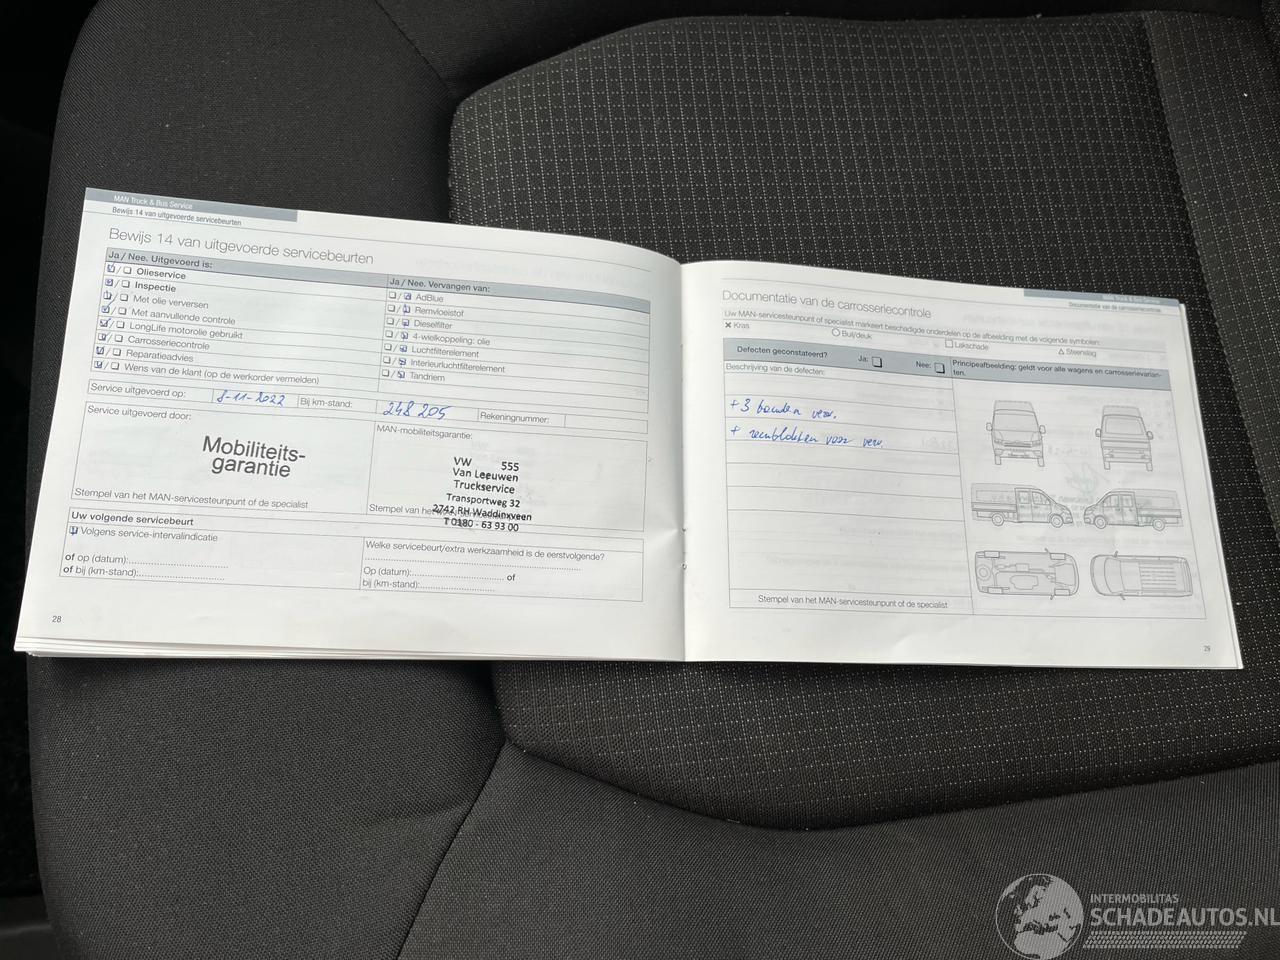 MAN Truck & Bus Service
Bewijs 14 van uitgevoerde servicebeurten
Bewijs 14 van uitgevoerde servicebeurten
Ja / Nee. Uitgevoerd is:
Olieservice
Inspectie
Met olie verversen
Met aanvullende controle
LongLife motorolie gebruikt
Carrosseriecontrole
Reparatieadvies
Wens van de klant (op de werkorder vermelden)
Ja / Nee. Vervangen van:
AdBlue
Remvloeistof
Dieselfilter
4-wielkoppeling: olie
Luchtfilterelement
Interieurluchtfilterelement
Tandriem
Service uitgevoerd op: 8-11-2022 Bij km-stand: 248 205 Rekeningnummer:
Service uitgevoerd door:
Mobiliteits-
garantie
Stempel van het MAN-servicesteunpunt of de specialist
MAN-mobiliteitsgarantie:
VW 555
Van Leeuwen
Truckservice
Transportweg 32
2742 RH Waddinxveen
T 0180 - 63 93 00
Stempel van het
Uw volgende servicebeurt
Volgens service-intervalindicatie
of op (datum):
of bij (km-stand):
Welke servicebeurt/extra werkzaamheid is de eerstvolgende?
Op (datum): of
bij (km-stand):
28
MAN Truck & Bus Service
Documentatie van de carrosseriecontrole
Documentatie van de carrosseriecontrole
Uw MAN-servicesteunpunt of specialist markeert beschadigde onderdelen op de afbeelding met de volgende symbolen:
Kras Buil/deuk Lakschade Steenslag
Defecten geconstateerd? Ja: Nee:
Beschrijving van de defecten:
Principeafbeelding: geldt voor alle wagens en carrosserievarian-
ten.
+ 3 banden verv.
+ remblokken voor verv.
Stempel van het MAN-servicesteunpunt of de specialist
29
INTERMOBILITAS
SCHADEAUTOS.NL